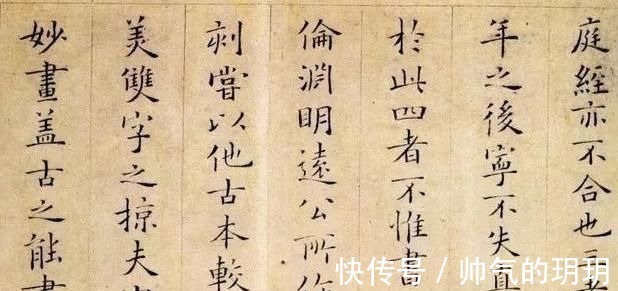 庭經亦不合也
年之後寧不失真
於此四者不惟書
倫淵明遠公所
刻嘗以他古本較
美雙字之掠夫
妙畫蓋古之能書
快传号 / 帅气的玥玥